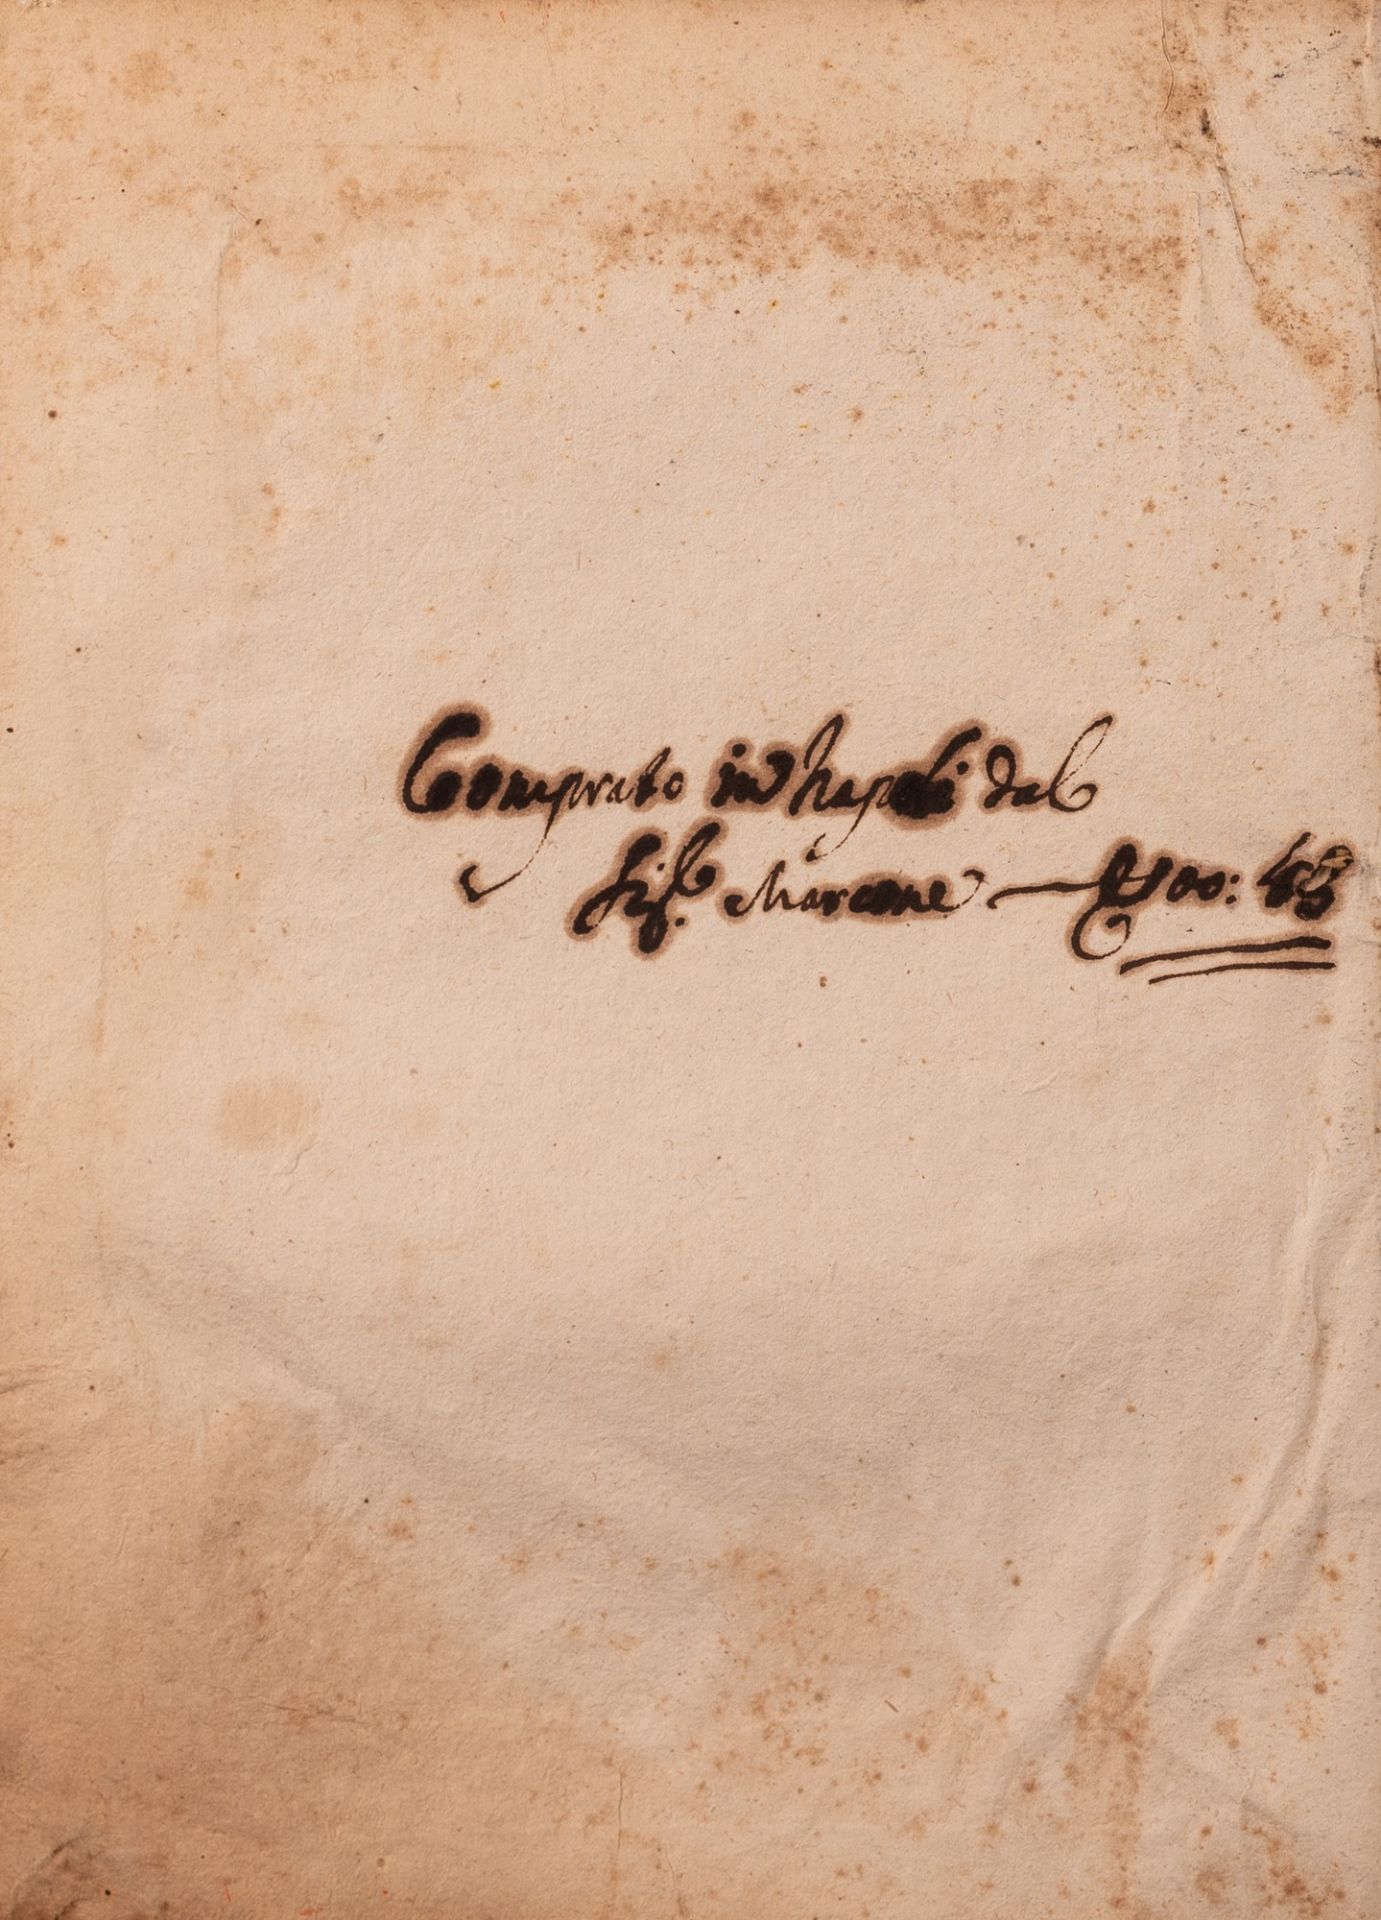 Comprato in Napoli dal
Sig.r Marcone